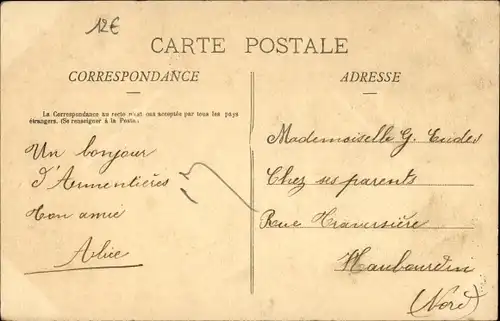 12€
CARTE POSTALE
CORRESPONDANCE
La Correspondance au recto n'est pas acceptée par tous les pays
étrangers. (Se renseigner à la Poste.)
Un bonjour
d'Armentières
Ton amie
Alice
ADRESSE
Mademoiselle G. Eudes
Chez ses parents
Rue Traversière
Haubourdin
(Nord)